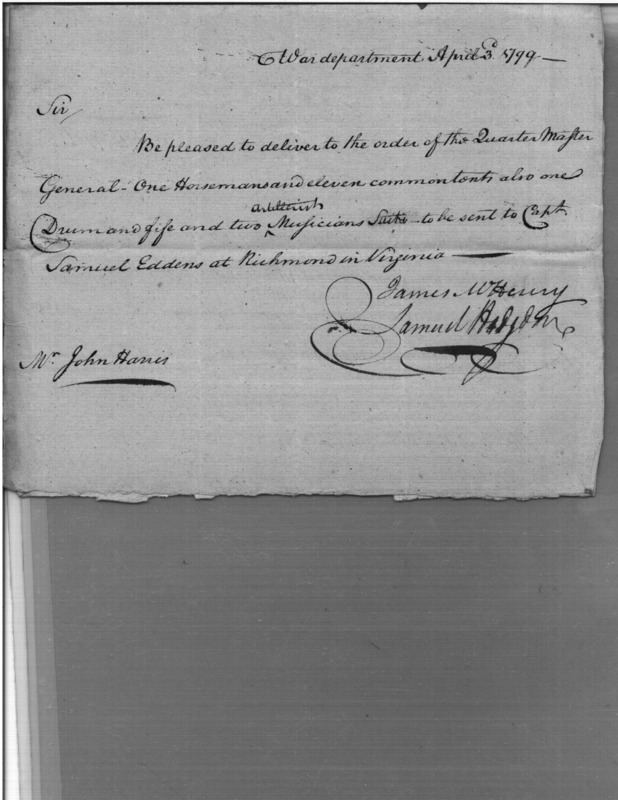 War department April 3d. 1799 —
Sir
Be pleased to deliver to the order of the Quarter Master
General - One Horsemans and eleven common tents also one
artillerists
Drum and fife and two ^ Musicians Suits - to be sent to Capt.
Samuel Eddens at Richmond in Virginia —
James McHenry
Samuel Hodgdon
Mr. John Harris